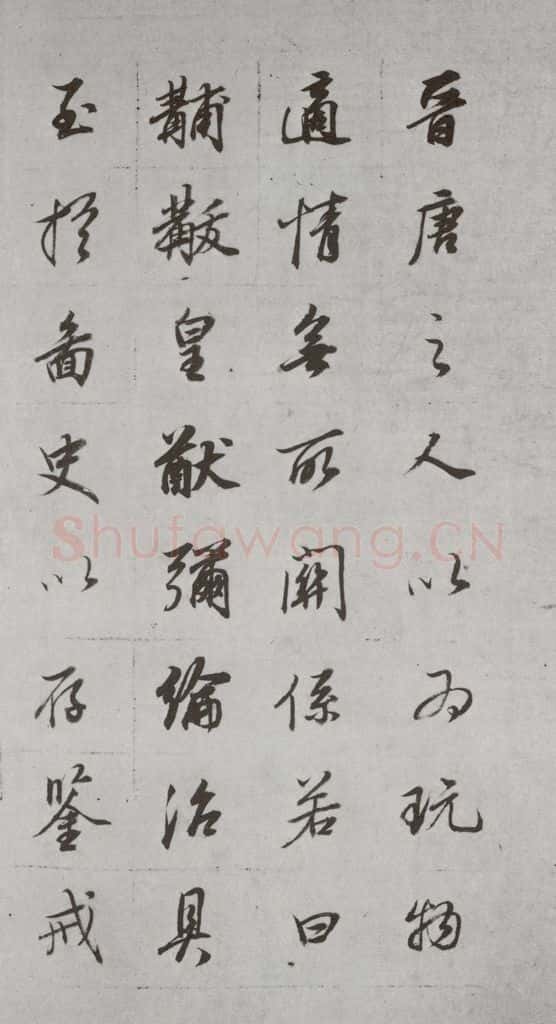 晉唐之人以為玩物
適情無所關係若曰
黼黻皇猷彌綸治具
至於圖史以存鑒戒
Shufawang.CN